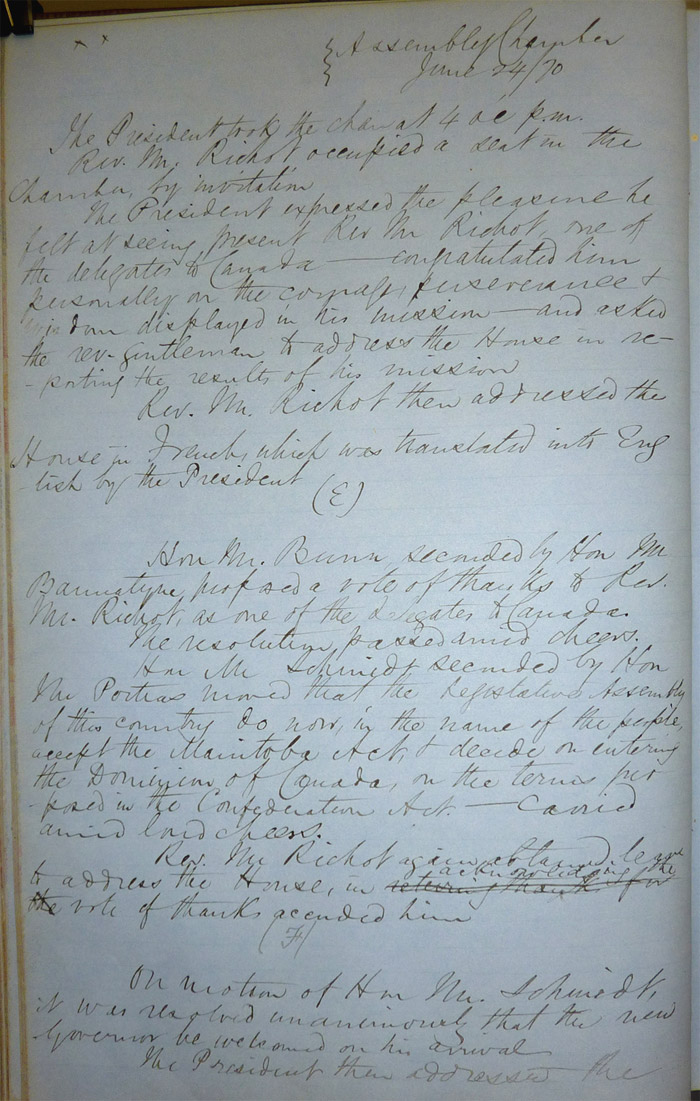 x x
Assembly Chamber
June 24/70
The President took the chair at 4 o'c p.m.
Rev. Mr. Richot occupied a seat in the
Chamber, by invitation
The President expressed the pleasure he
felt at seeing present Rev Mr Richot, one of
the delegates to Canada — congratulated him
personally on the courage, perseverance &
wisdom displayed in his mission — and asked
the rev. gentleman to address the House in re-
-porting the results of his mission
Rev. Mr. Richot then addressed the
House in French, which was translated into Eng
-lish by the President
(E)
Hon Mr. Bunn, seconded by Hon Mr
Bannatyne, proposed a vote of thanks to Rev.
Mr. Richot, as one of the delegates to Canada.
The resolution passed amid cheers.
Hon Mr Schmidt seconded by Hon
Mr Poitras moved that the Legislative Assembly
of this country do now, in the name of the people,
accept the Manitoba Act, & decide on entering
the Dominion of Canada, on the terms pro
-posed in the Confederation Act. — Carried
amid loud cheers.
Rev. Mr Richot again obtained leave
acknowledging the
to address the House, in returning thanks for
the vote of thanks accorded him
(F)
On motion of Hon Mr. Schmidt,
it was resolved unanimously that the new
Governor be welcomed on his arrival
The President then addressed the